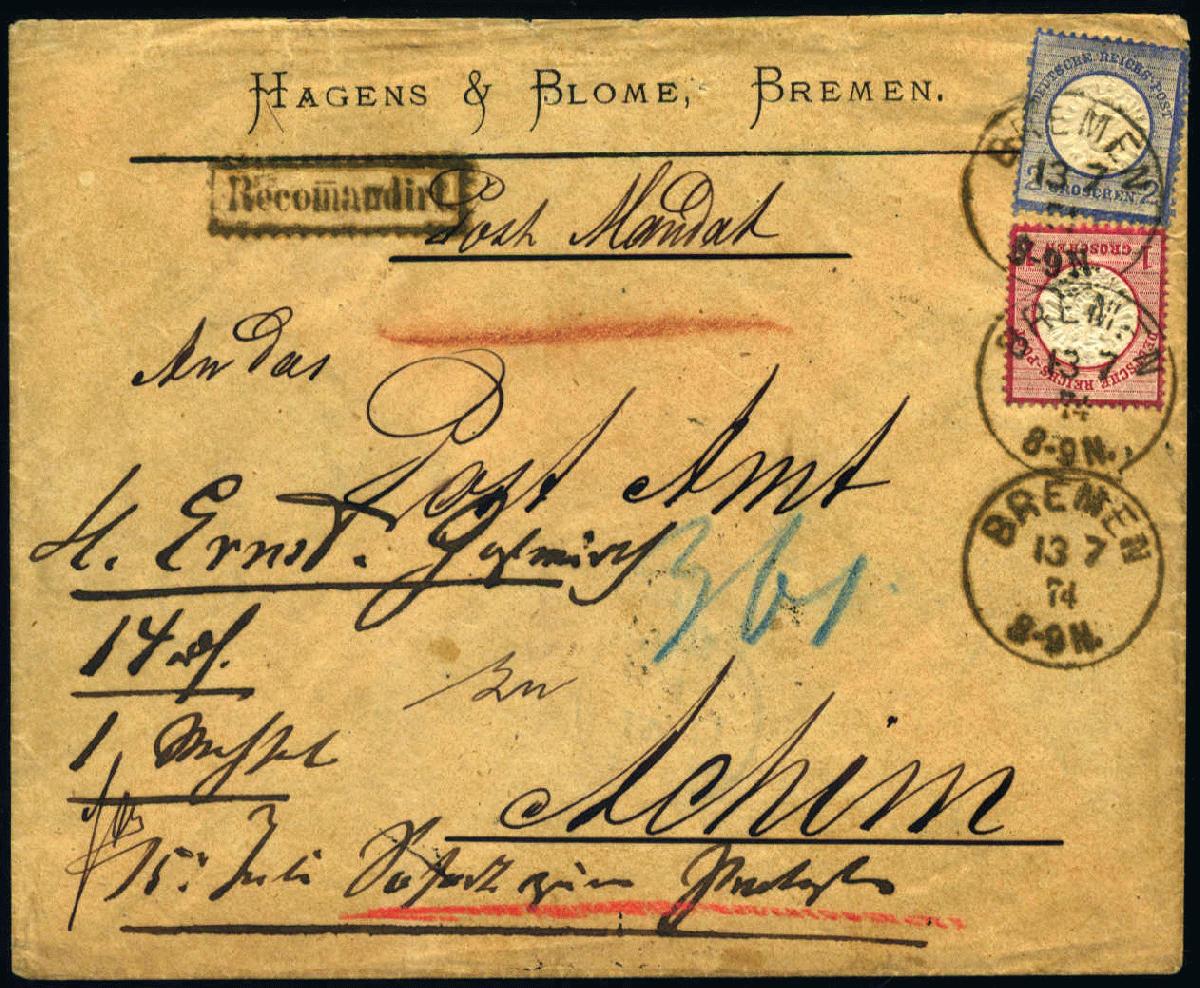 HAGENS & BLOME, BREMEN.
Recomandirt
Post Mandat
An das
Post Amt
H. Ernst.
14
361.
zu
1 Wechsel
Achim
15: Juli Sofort zum Protest
DEUTSCHE REICHS-POST
2 GROSCHEN 2
BREMEN
13 7
8-9N.
1 GROSCHEN 1
DEUTSCHE REICHS-POST
BREMEN
13 7
74
8-9N.
BREMEN
13 7
74
8-9N.